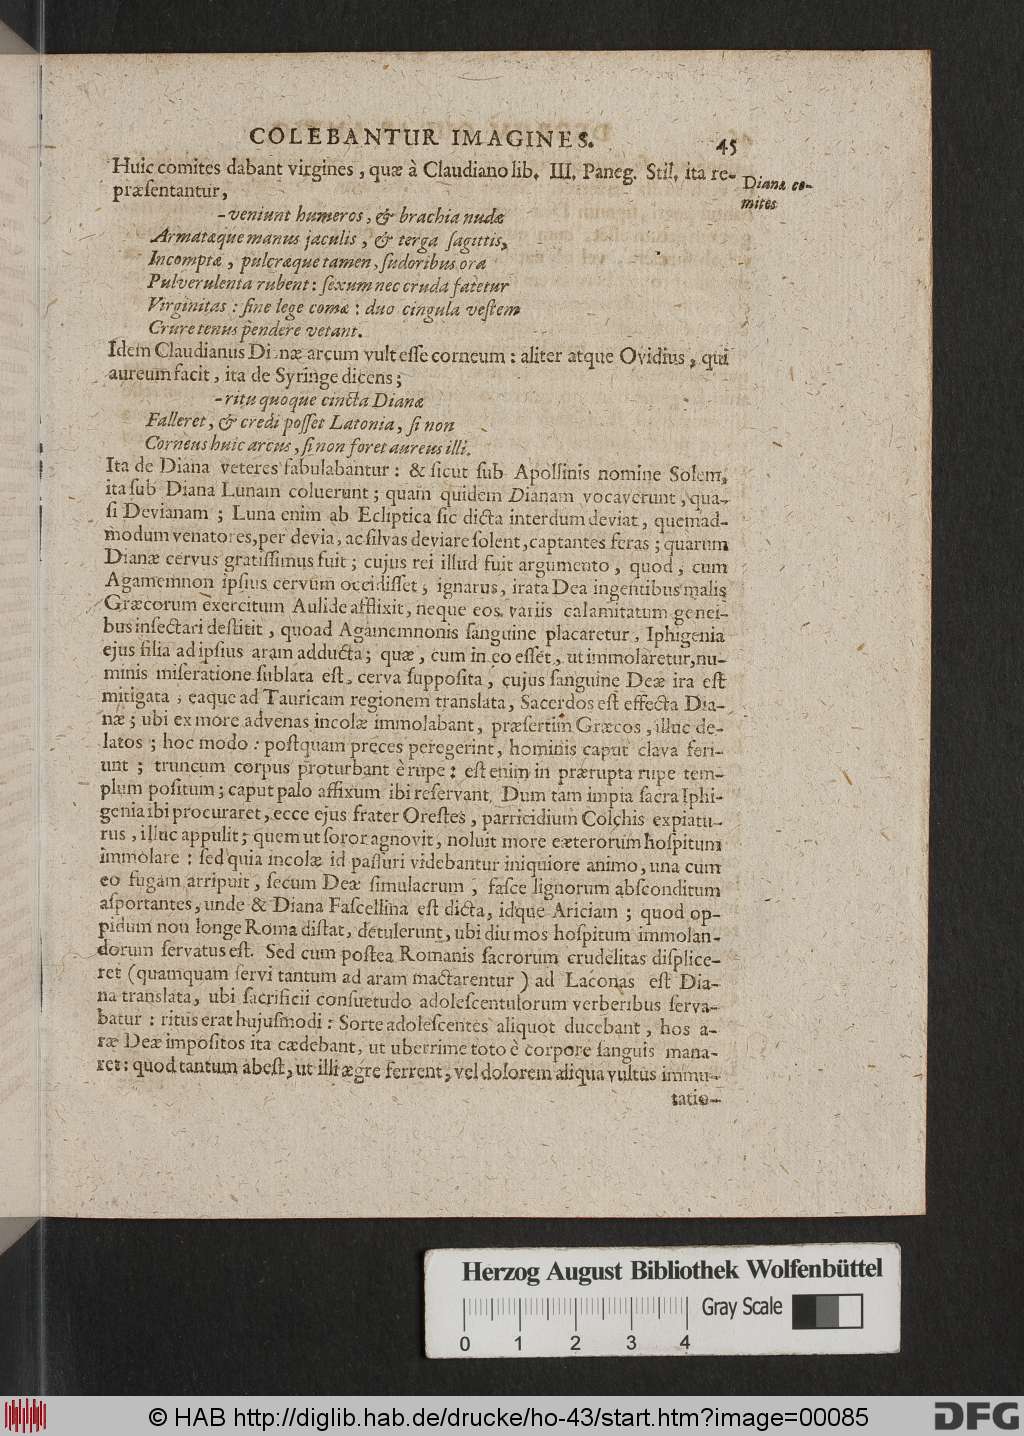 COLEBANTUR IMAGINES. 45
Huic comites dabant virgines, quæ à Claudiano lib. III. Paneg. Stil. ita re-
præsentantur,
Dianæ co-
mites
-veniunt humeros, & brachia nudæ
Armatæque manus jaculis, & terga sagittis,
Incomptæ, pulcræque tamen, sudoribus ora
Pulverulenta rubent: sexum nec cruda fatetur
Virginitas: sine lege comæ: duo cingula vestem
Crure tenus pendere vetant.
Idem Claudianus Dianæ arcum vult esse corneum: aliter atque Ovidius, qui
aureum facit, ita de Syringe dicens;
-ritu quoque cincta Dianæ
Falleret, & credi posset Latonia, si non
Corneus huic arcus, si non foret aureus illi.
Ita de Diana veteres fabulabantur: & sicut sub Apollinis nomine Solem,
ita sub Diana Lunam coluerunt; quam quidem Dianam vocaverunt, qua-
si Devianam; Luna enim ab Ecliptica sic dicta interdum deviat, quemad-
modum venatores, per devia, ac silvas deviare solent, captantes feras; quarum
Dianæ cervus gratissimus fuit; cujus rei illud fuit argumento, quod, cum
Agamemnon ipsius cervum occidisset, ignarus, irata Dea ingentibus malis
Græcorum exercitum Aulide afflixit, neque eos variis calamitatum generi-
bus insectari destitit, quoad Agamemnonis sanguine placaretur, Iphigenia
ejus filia ad ipsius aram adducta; quæ, cum in eo esset, ut immolaretur, nu-
minis miseratione sublata est, cerva supposita, cujus sanguine Deæ ira est
mitigata, eaque ad Tauricam regionem translata, Sacerdos est effecta Dia-
næ; ubi ex more advenas incolæ immolabant, præsertim Græcos, illuc de-
latos; hoc modo: postquam preces peregerint, hominis caput clava feri-
unt; truncum corpus proturbant è rupe: est enim in prærupta rupe tem-
plum positum; caput palo affixum ibi reservant. Dum tam impia sacra Iphi-
genia ibi procuraret, ecce ejus frater Orestes, parricidium Colchis expiatu-
rus, illuc appulit; quem ut soror agnovit, noluit more exterorum hospitum
immolare: sed quia incolæ id passuri videbantur iniquiore animo, una cum
eo fugam arripuit, secum Deæ simulacrum, fasce lignorum absconditum
asportantes, unde & Diana Fascellina est dicta, idque Ariciam; quod op-
pidum non longe Roma distat, detulerunt, ubi diu mos hospitum immolan-
dorum servatus est. Sed cum postea Romanis sacrorum crudelitas displice-
ret (quamquam servi tantum ad aram mactarentur) ad Laconas est Dia-
na translata, ubi sacrificii consuetudo adolescentulorum verberibus serva-
batur: ritus erat hujusmodi: Sorte adolescentes aliquot ducebant, hos a-
ræ Deæ impositos ita cædebant, ut uberrime toto è corpore sanguis mana-
ret: quod tantum abest, ut illi ægre ferrent, vel dolorem aliqua vultus immu-
tatio-
Herzog August Bibliothek Wolfenbüttel
Gray Scale
0 1 2 3 4
© HAB http://diglib.hab.de/drucke/ho-43/start.htm?image=00085
DFG